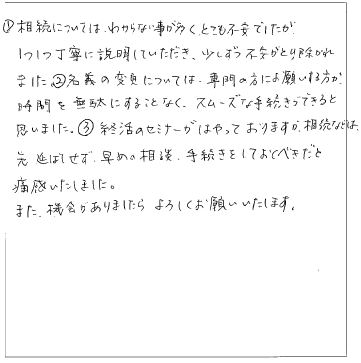 ①相続については、わからない事が多く、とても不安でしたが
1つ1つ丁寧に説明していただき、少しずつ不安がとり除かれ
ました②名義の変更については、専門の方にお願いする方が
時間を無駄にすることなく、スムーズな手続きができると
思いました。③終活のセミナーがはやっておりますが、相続などは、
先延ばしせず、早めの相談、手続きをしておくべきだと
痛感いたしました。
また、機会がありましたらよろしくお願いいたします。